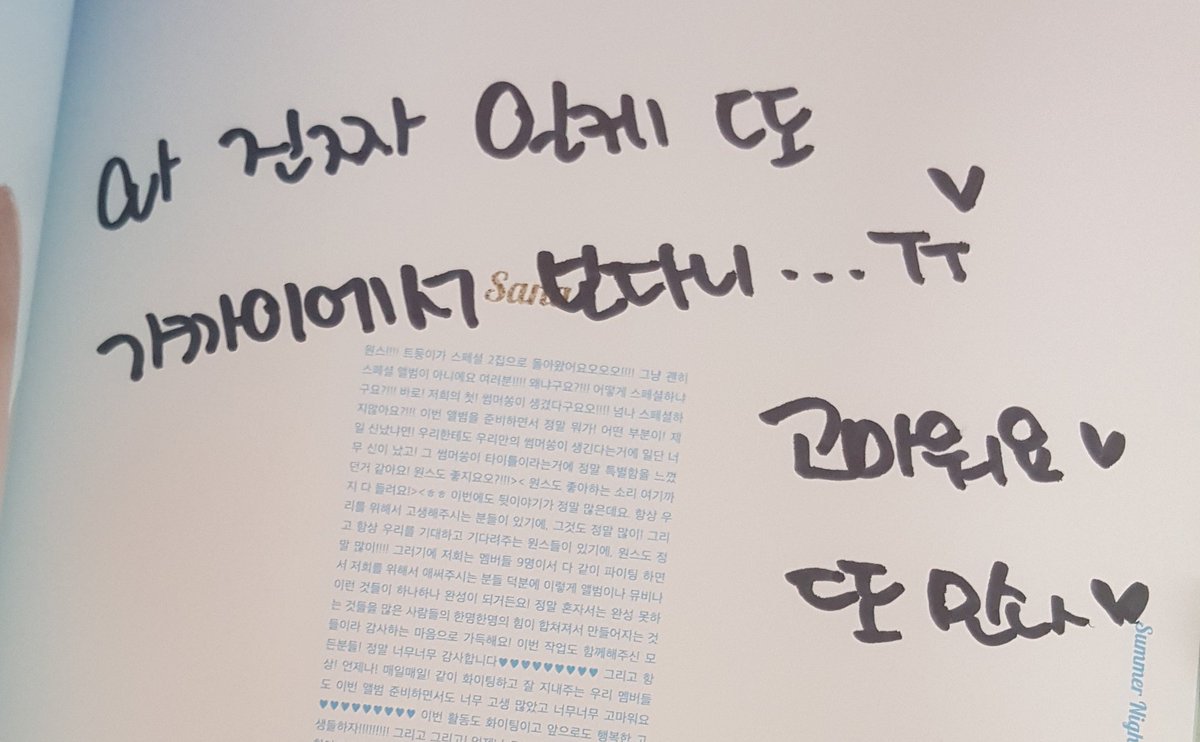 와 진짜 일케 또
가까이에서 본다니 ... TT ♥
고마워요 ♥
또 만나 ♥
Sana
원스!!!! 트둥이가 스페셜 2집으로 돌아왔어요오오오!!!! 그냥 괜히
스페셜 앨범이 아니에요 여러분!!!! 왜냐구요?!!! 어떻게 스페셜하냐
구요?!!! 바로! 저희의 첫! 썸머쏭이 생겼다구요오!!!! 넘나 스페셜하
지않아요?!!! 이번 앨범을 준비하면서 정말 뭐가! 어떤 부분이! 제
일 신났냐면! 우리한테도 우리만의 썸머쏭이 생긴다는거에 일단 너
무 신이 났고! 그 썸머쏭이 타이틀이라는거에 정말 특별함을 느꼈
던거 같아요! 원스도 좋지요오?!!!>< 원스도 좋아하는 소리 여기까
지 다 들려요!><ㅎㅎ 이번에도 뒷이야기가 정말 많은데요. 항상 우
리를 위해서 고생해주시는 분들이 있기에, 그것도 정말 많이! 그리
고 항상 우리를 기대하고 기다려주는 원스들이 있기에, 원스도 정
말 많이!!!! 그러기에 저희는 멤버들 9명이서 다 같이 파이팅 하면
서 저희를 위해서 애써주시는 분들 덕분에 이렇게 앨범이나 뮤비나
이런 것들이 하나하나 완성이 되거든요! 정말 혼자서는 완성 못하
는 것들을 많은 사람들의 한명한명의 힘이 합쳐져서 만들어지는 것
들이라 감사하는 마음으로 가득해요! 이번 작업도 함께해주신 모
든분들! 정말 너무너무 감사합니다♥♥♥♥♥♥♥♥♥ 그리고 항
상! 언제나! 매일매일! 같이 화이팅하고 잘 지내주는 우리 멤버들
도 이번 앨범 준비하면서도 너무 고생 많았고 너무너무 고마워요
♥♥♥♥♥♥♥♥♥ 이번 활동도 화이팅이고 앞으로도 행복한 고
생들하자!!!!!!!!! 그리고 그리고!
Summer Nigh